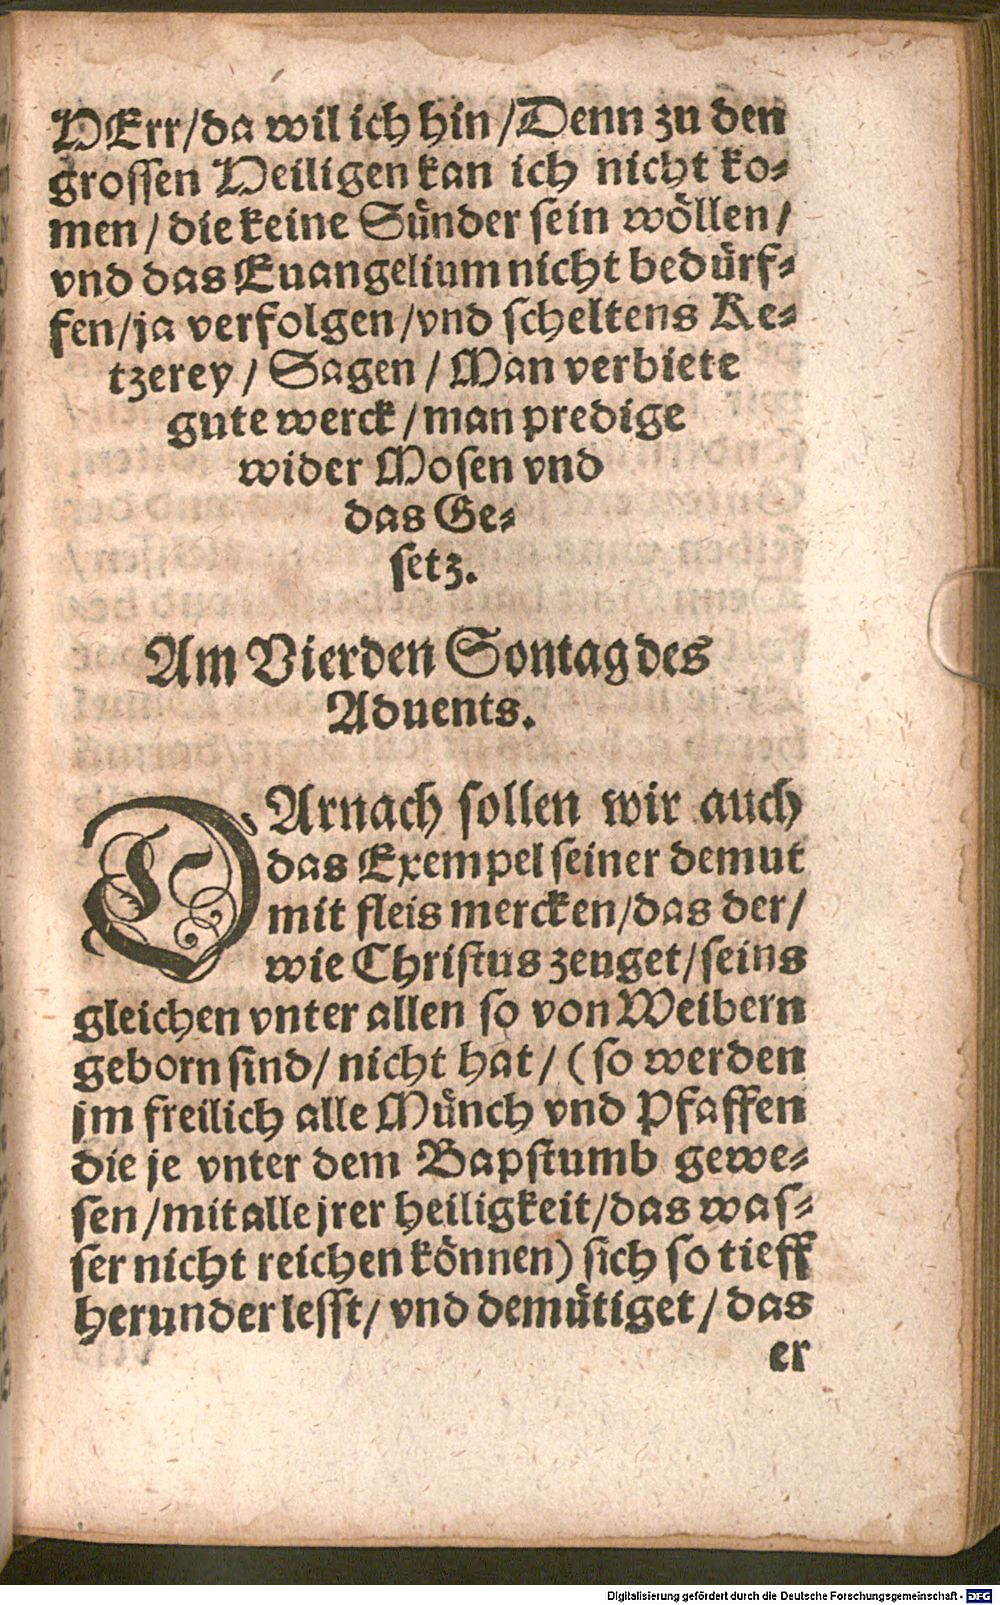 HErr/da wil ich hin/Denn zu den
grossen Heiligen kan ich nicht ko-
men/die keine Sünder sein wöllen/
vnd das Euangelium nicht bedürf-
fen/ja verfolgen/vnd scheltens Ke-
tzerey/Sagen/Man verbiete
gute werck/man predige
wider Mosen vnd
das Ge-
setz.
Am Vierden Sontag des
Aduents.
DArnach sollen wir auch
das Exempel seiner demut
mit fleis mercken/das der/
wie Christus zeuget/seins
gleichen vnter allen so von Weibern
geborn sind/nicht hat/(so werden
jm freilich alle Münch vnd Pfaffen
die je vnter dem Bapstumb gewe-
sen/mit alle jrer heiligkeit/das was-
ser nicht reichen können) sich so tieff
herunder lesst/vnd demütiget/das
er
Digitalisierung gefördert durch die Deutsche Forschungsgemeinschaft - DFG